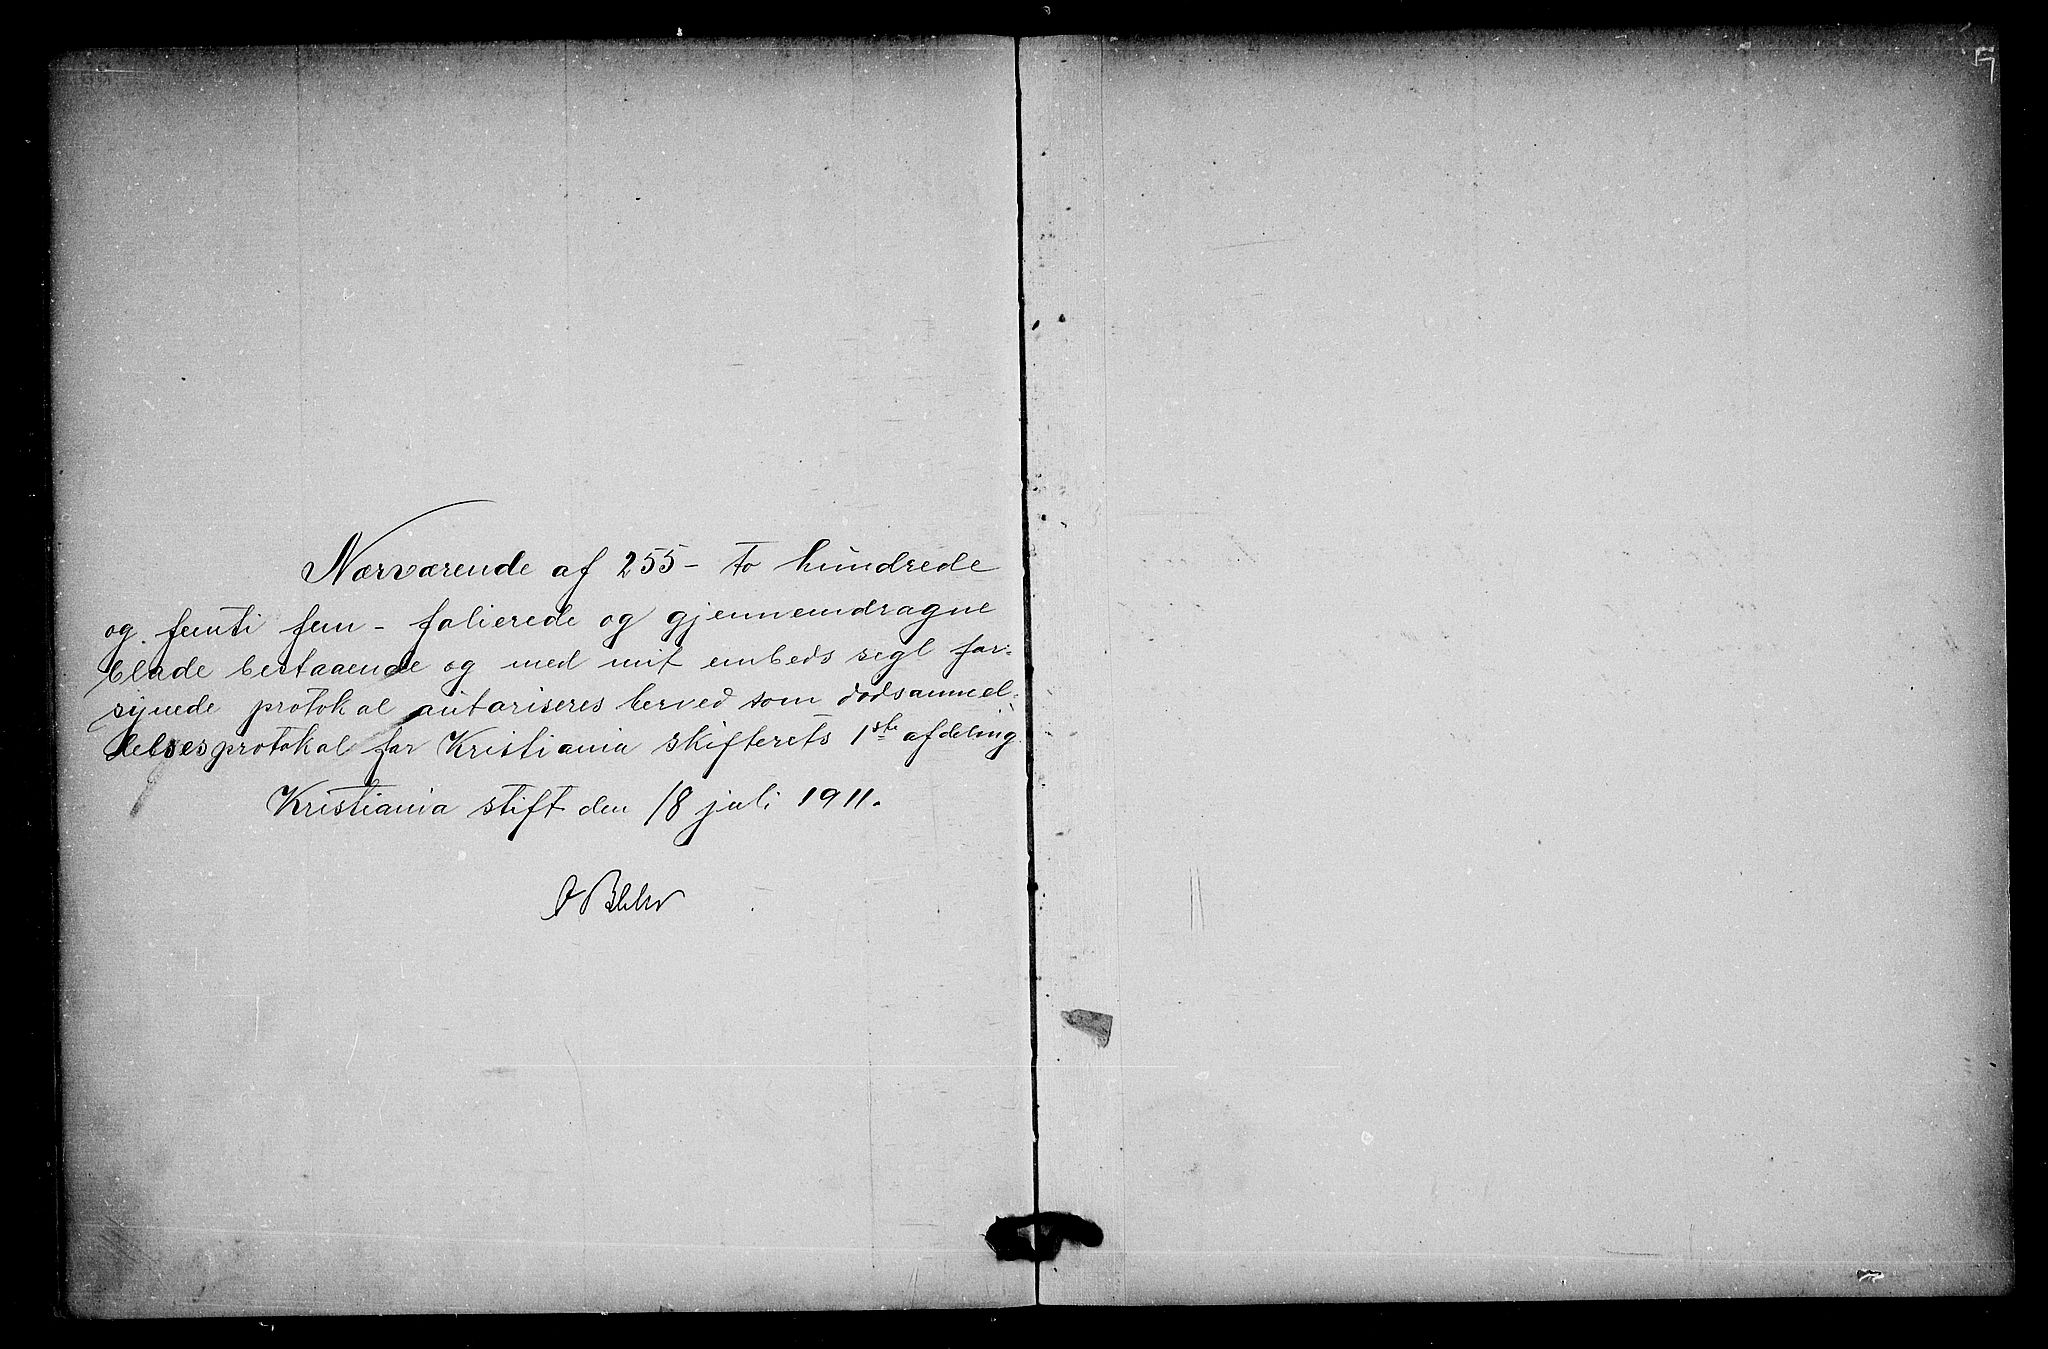 Nærværende af 255 - to hundrede
og femti fem - folierede og gjennemdragne
blade bestaaende og med mit embeds segl for-
synede protokol autoriseres herved som dødsanmel-
delsesprotokol for Kristiania skifterets 1ste afdeling.
Kristiania stift den 18 juli 1911.
O Blehr